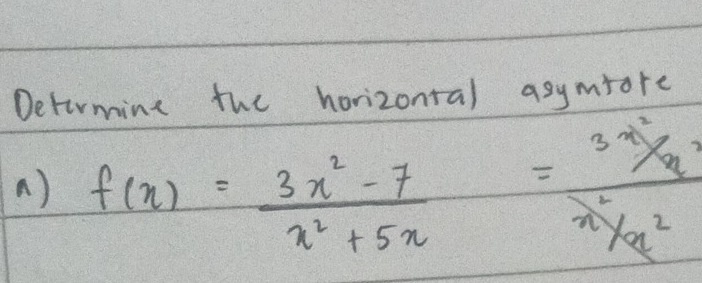 Determine the horizontal asymtote
a) f(x) = 3x² - 7 / x² + 5x = 3x²/x² / x²/x²